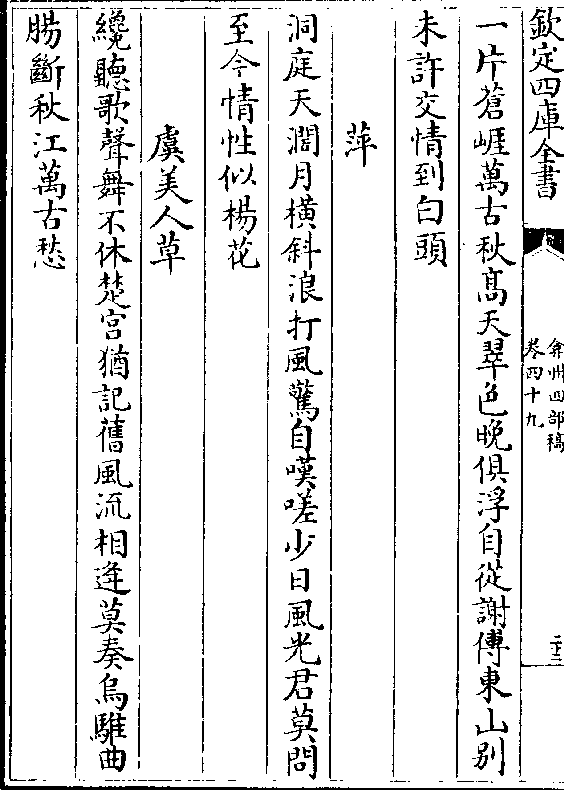 欽定四庫全書
弇州四部稿
卷四十九
二十二
一片蒼崕萬古秋髙天翠色晚俱浮自從謝傅東山别
未許交情到白頭
萍
洞庭天濶月横斜浪打風驚自嘆嗟少日風光君莫問
至今情性似楊花
虞美人草
纔聽歌聲舞不休楚宫猶記舊風流相逢莫奏烏騅曲
腸斷秋江萬古愁